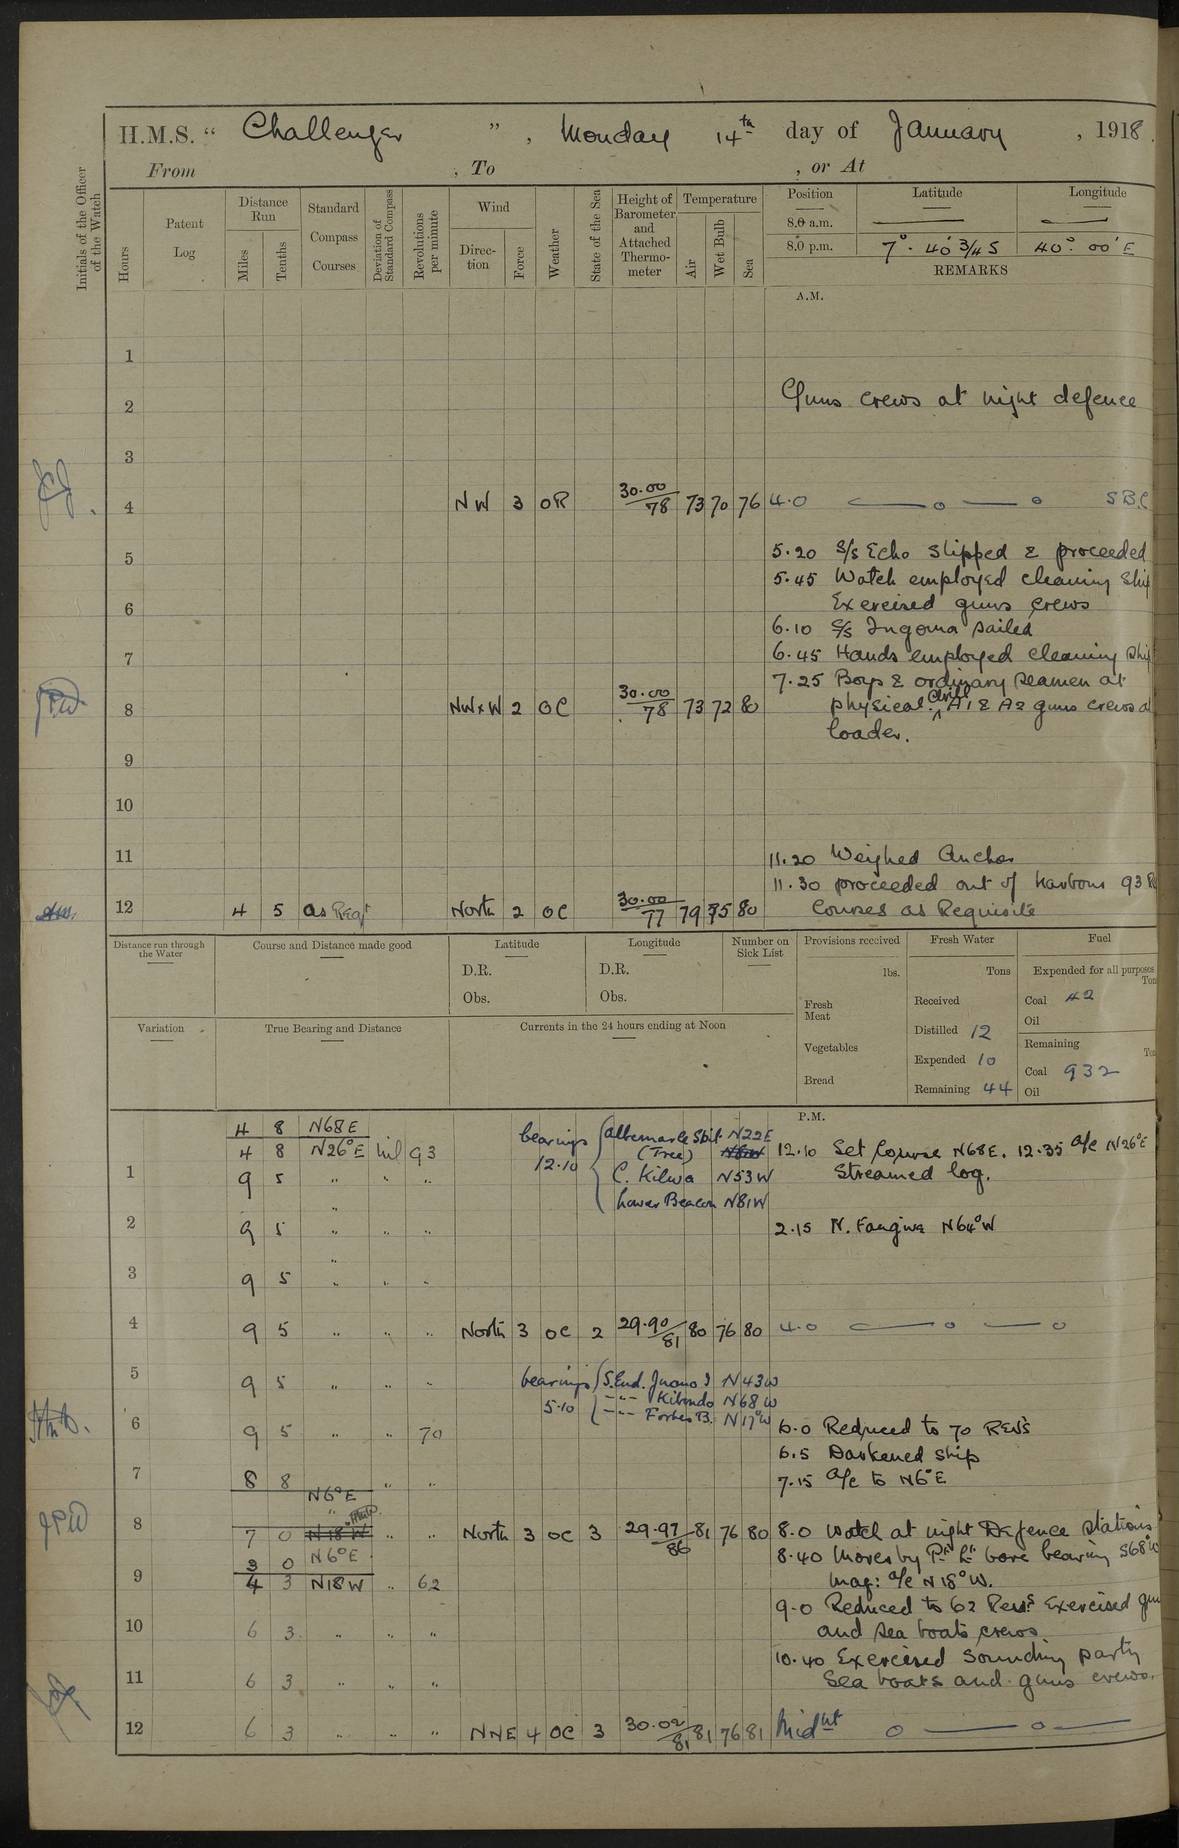 H.M.S. “ Challenger ” , Monday 14th day of January , 1918.
From , To , or At
Initials of the Officer of the Watch
Hours
Patent Log
Distance Run
Miles
Tenths
Standard Compass Courses
Deviation of Standard Compass
Revolutions per minute
Wind
Direction
Force
Weather
State of the Sea
Height of Barometer and Attached Thermometer
Temperature
Air
Wet Bulb
Sea
Position Latitude Longitude
8.0 a.m.
8.0 p.m. 7° 40' 3/4 S 40° 00' E
REMARKS
A.M.
1
2 Guns crews at night defence
3
4 NW 3 OR 30.00/78 73 70 76 4.0 S.B.C
5 5.20 S/s Echo slipped & proceeded
5.45 Watch employed cleaning ship
6 Exercised guns crews
6.10 S/s Ingoma sailed
7 6.45 Hands employed cleaning ship
7.25 Boys & ordinary seamen at
8 NWxW 2 OC 30.00/78 73 72 80 physical drill A1 & A2 guns crews at
loader.
9
10
11 11.20 Weighed Anchor
11.30 proceeded out of harbour 93
12 4 5 as Reqt North 2 OC 30.00/77 79 75 80 Courses as Requisite
Distance run through the Water
Course and Distance made good
Latitude
D.R.
Obs.
Longitude
D.R.
Obs.
Number on Sick List
Provisions received
lbs.
Fresh Meat
Vegetables
Bread
Fresh Water
Tons
Received
Distilled 12
Expended 10
Remaining 44
Fuel
Expended for all purposes
Coal 42
Oil
Remaining
Coal 932
Oil
Variation
True Bearing and Distance
Currents in the 24 hours ending at Noon
P.M.
4 8 N68E
4 8 N26°E nil 93 bearings 12.10 Albemarle Spit (Tree) N22E 12.10 Set Course N68E. 12.35 a/c N26°E
1 9 5 " " " C. Kilwa N53W Streamed log.
Lower Beacon N81W
2 9 5 " " " 2.15 N. Fanjive N64°W
3 9 5 " " "
4 9 5 " " " North 3 OC 2 29.90/81 80 76 80 4.0
5 9 5 " " " bearings 5.10 S. End. Juano I N43W
" " Kibondo N68W
" " Forbes B. N17°W
6 9 5 " " 70 6.0 Reduced to 70 Revs
6.5 Darkened Ship
7 8 8 " " 7.15 a/c to N6°E
N6°E
8 7 0 N18W " " North 3 OC 3 29.97/86 81 76 80 8.0 Watch at night Defence Stations
3 0 N6°E 8.40 Moresby Pt Lt bore bearing S68°W
9 4 3 N18W " 62 Mag: a/c N18°W.
9.0 Reduced to 62 Revs Exercised gun
10 6 3 " " " and sea boats crews
10.40 Exercised Sounding party
11 6 3 " " " Sea boats and guns crews.
12 6 3 " " " NNE 4 OC 3 30.02/81 81 76 81 Midnt